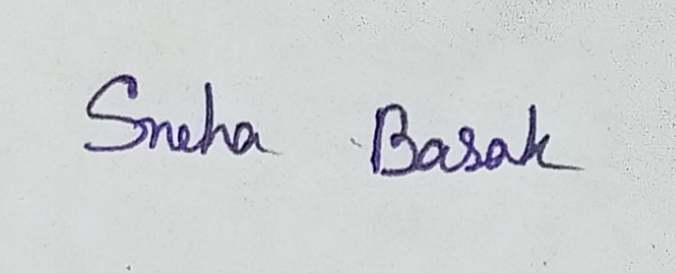 Sneha Basak